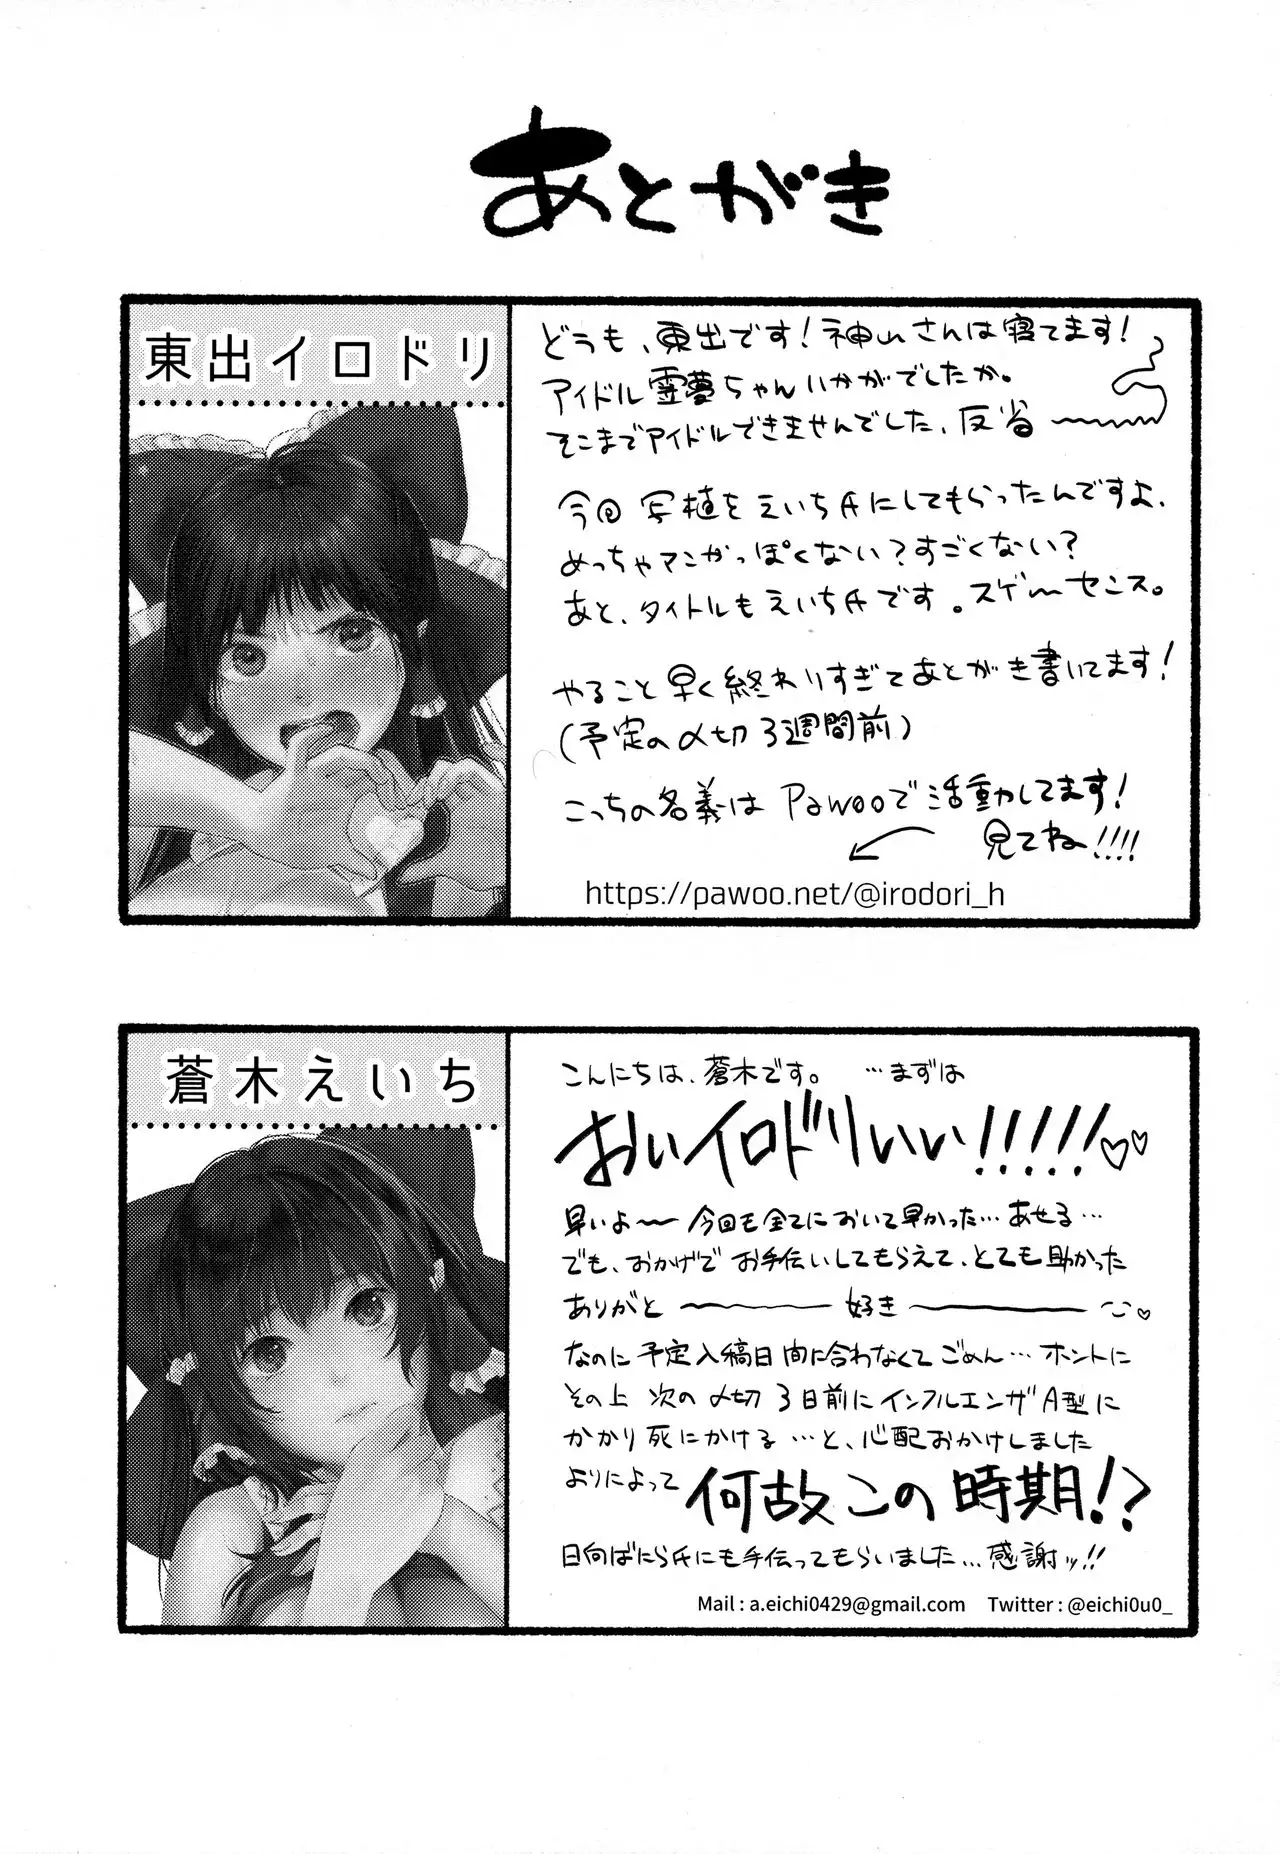 あとがき
東出イロドリ
どうも、東出です!神山さんは寝てます!
アイドル霊夢ちゃんいかがでしたか。
そこまでアイドルできませんでした、反省
今回写植をえいち氏にしてもらったんですよ、
めっちゃマンガっぽくない?すごくない?
あと、タイトルもえいち氏です。スゲ〜センス。
やること早く終わりすぎてあとがき書いてます!
(予定の〆切3週間前)
こっちの名義はPawooで活動してます!
見てね!!!!
https://pawoo.net/@irodori_h
蒼木えいち
こんにちは、蒼木です。 …まずは
おいイロドリいい!!!!!♡♡
早いよ〜今回も全てにおいて早かった…あせる…
でも、おかげでお手伝いしてもらえて、とても助かった
ありがと――好き――
なのに予定入稿日間に合わなくてごめん…ホントに
その上次の〆切3日前にインフルエンザA型に
かかり死にかける…と、心配おかけしました
よりによって何故この時期!?
日向ばにら氏にも手伝ってもらいました…感謝ッ!!
Mail : a.eichi0429@gmail.com Twitter : @eichi0u0_